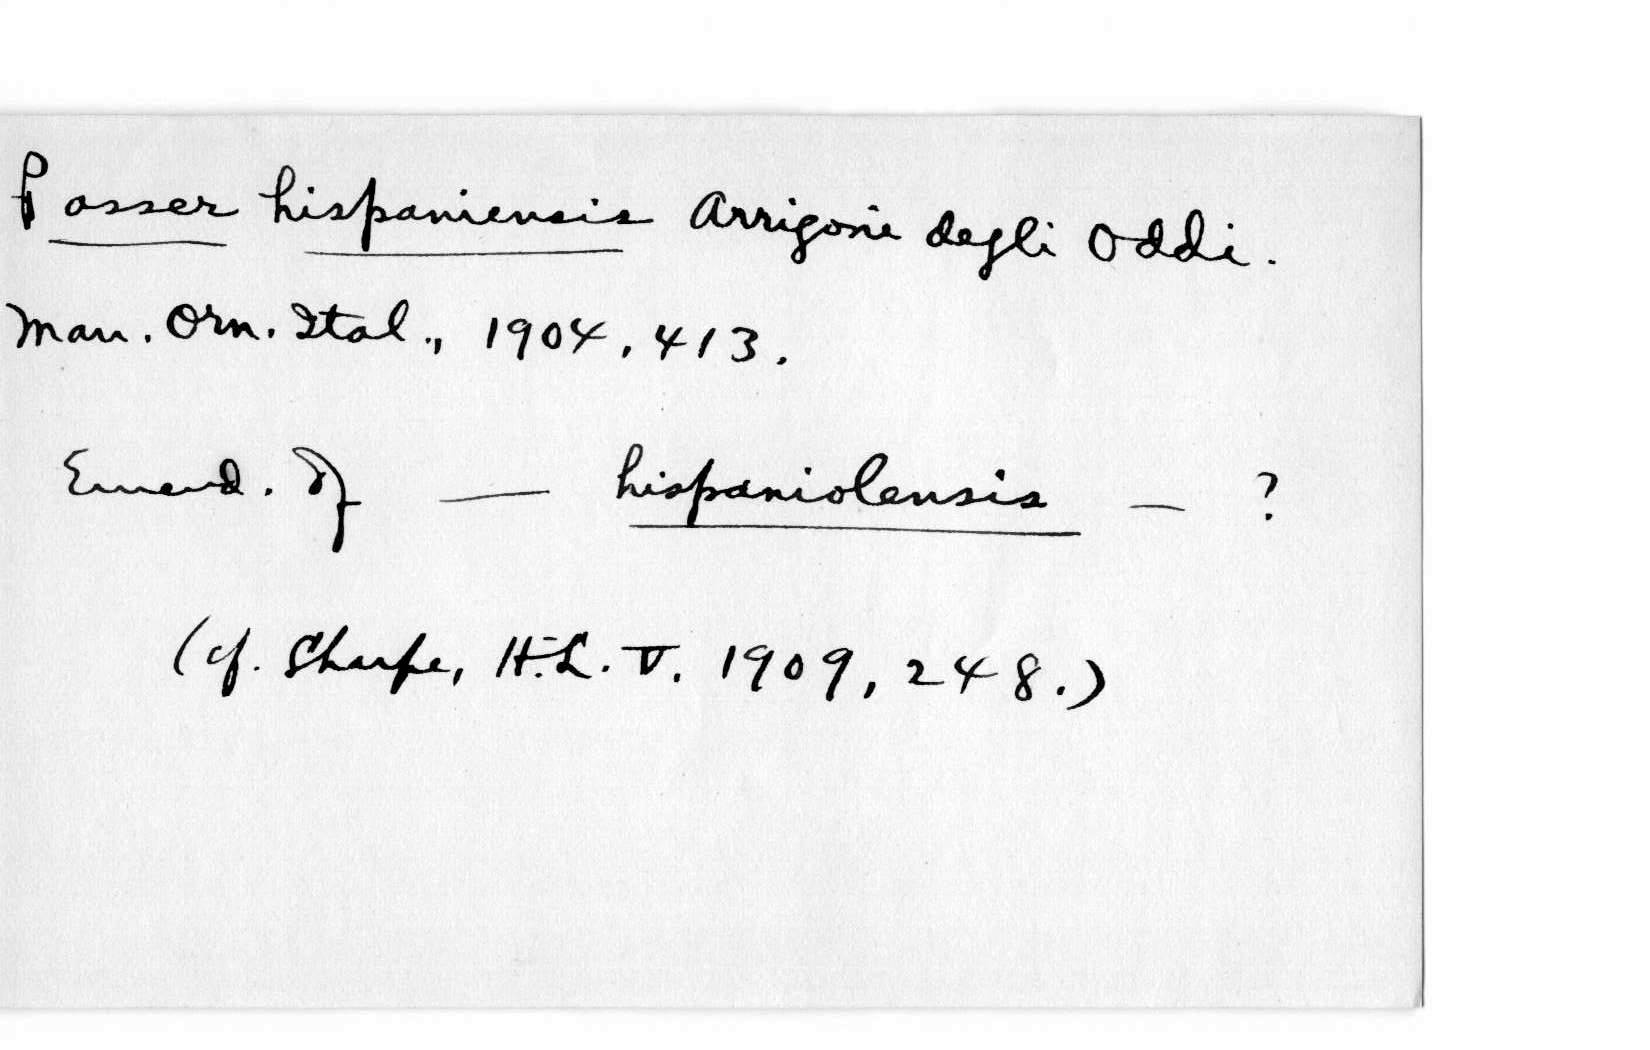 Passer hispaniensis Arrigoni degli Oddi.
Man. Orn. Ital., 1904, 413.
Emend. of — hispaniolensis — ?
(cf. Sharpe, H.L. V. 1909, 248.)